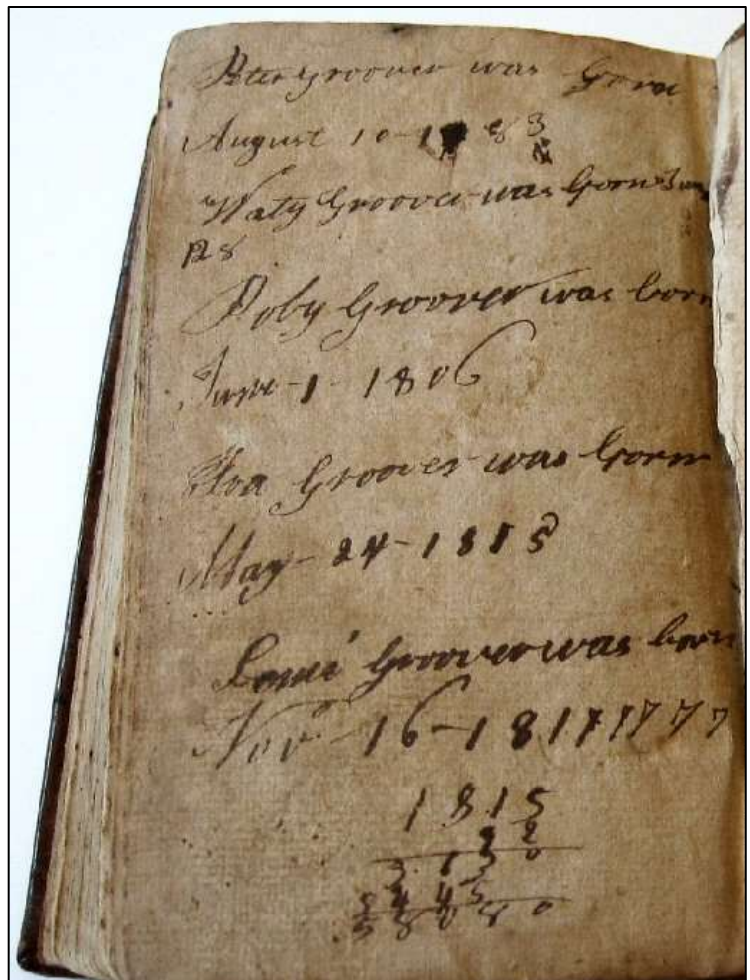 Peter Groover was born
August 10 - 1 83
Waty Groover was born
Roby Groover was born
June - 1 - 1806
Ira Groover was born
May - 24 - 1815
Groover was born
Nov - 16 - 1817 7 7 7 7
1815